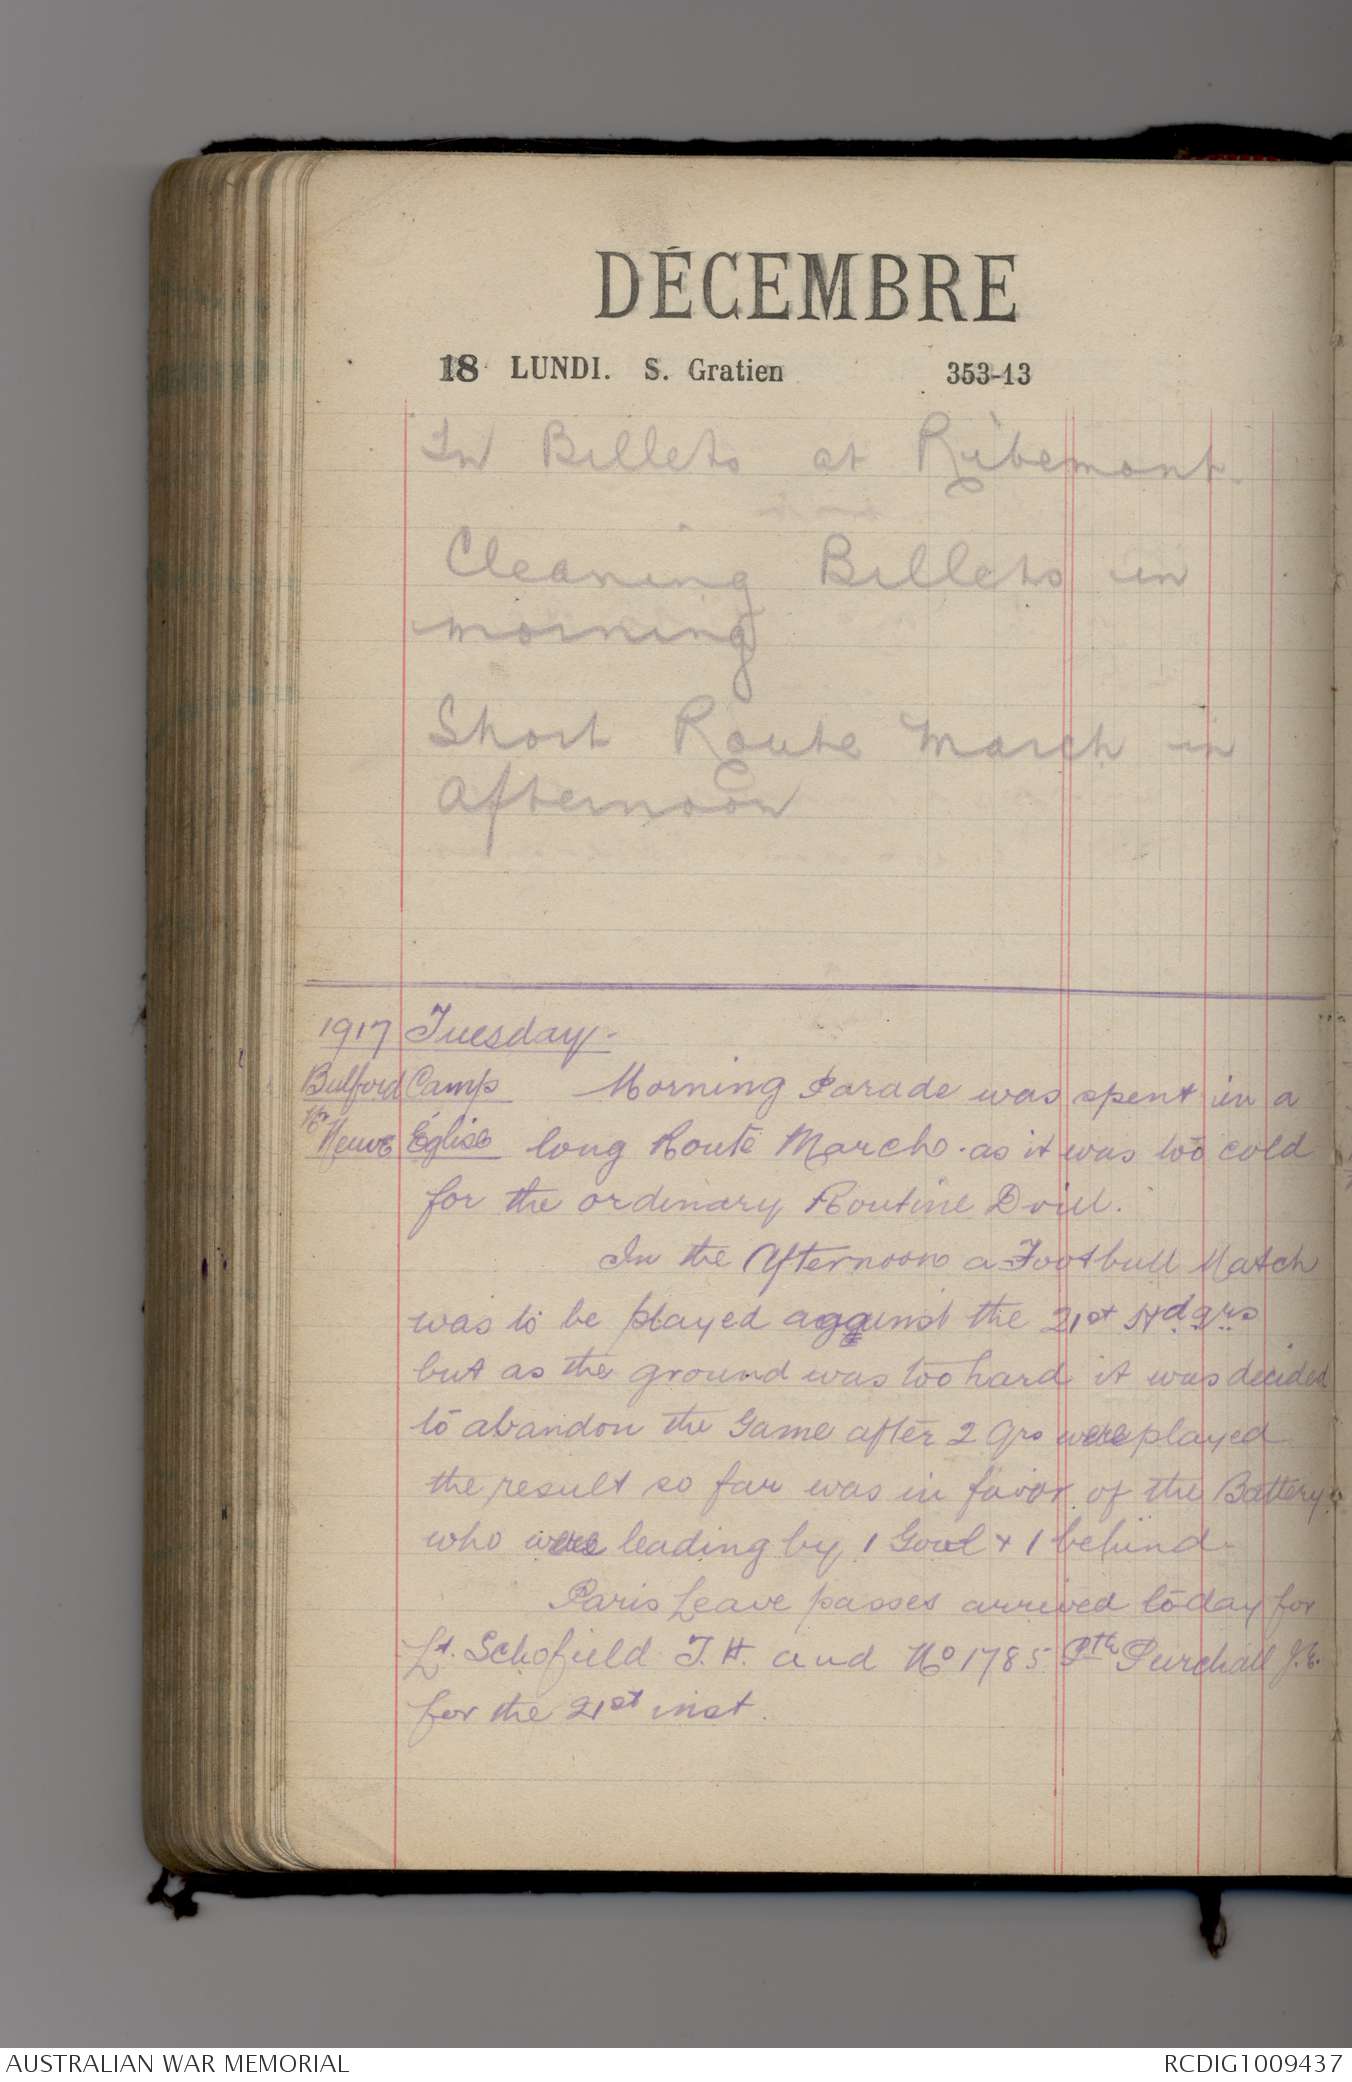 DÉCEMBRE
18 LUNDI. S. Gratien 353-13
In Billets at Ribemont.
Cleaning Billets in
morning
Short Route March in
afternoon
1917 Tuesday.
Bulford Camp Morning Parade was spent in a
Nr Neuve Église long Route March. as it was too cold
for the ordinary Routine Drill.
In the Afternoon a Football Match
was to be played against the 21st Hdqrs
but as the ground was too hard it was decided
to abandon the Game after 2 Qrs were played
the result so far was in favor of the Battery
who were leading by 1 Goal & 1 behind.
Paris Leave passes arrived today for
Lt. Schofield T.H. and No 1785 Pte Purchall J.E.
for the 21st inst.
AUSTRALIAN WAR MEMORIAL RCDIG1009437